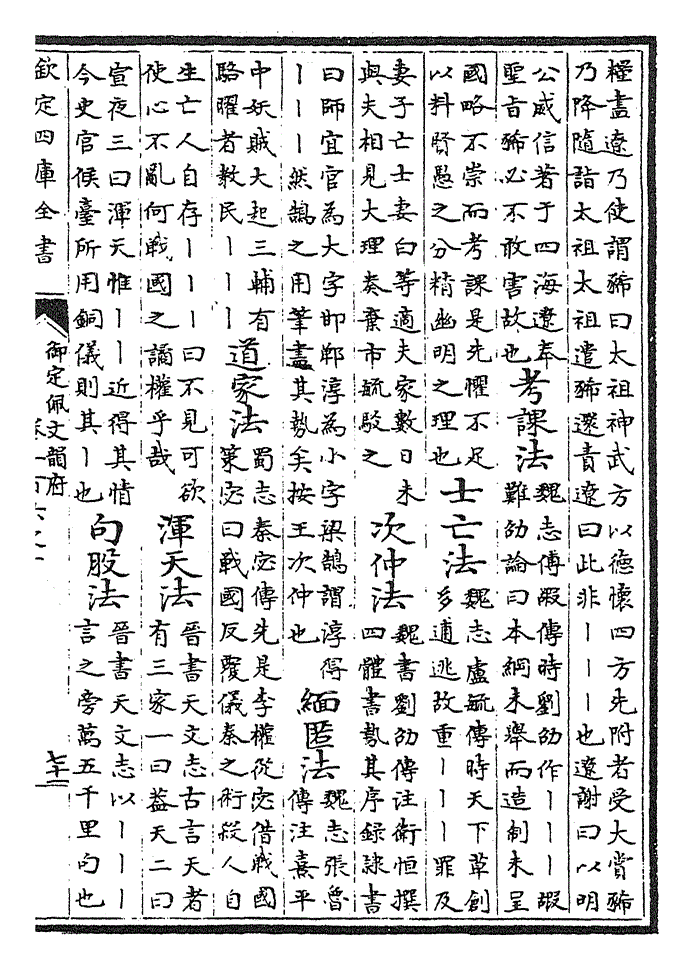 糧盡遼乃使謂豨曰太祖神武方以德懷四方先附者受大賞豨
乃降隨詣太祖太祖遣豨還責遼曰此非丨丨丨也遼謝曰以明
公威信著于四海遼奉
聖旨豨必不敢害故也
考課法
魏志傅嘏傳時劉劭作丨丨丨嘏
難劭論曰本綱未舉而造制未呈
國略不崇而考課是先懼不足
以料賢愚之分精幽明之理也
士亡法
魏志盧毓傳時天下草創
多逋逃故重丨丨丨罪及
妻子亡士妻白等適夫家數日未
與夫相見大理奏棄市毓駁之
次仲法
魏書劉劭傳注衛恒撰
四體書勢其序録隸書
曰師宜官為大字邯鄲淳為小字梁鵠謂淳得
丨丨丨然鵠之用筆盡其勢矣按王次仲也
緬匿法
魏志張魯
傳注熹平
中妖賊大起三輔有
駱曜者教民丨丨丨
道家法
蜀志秦宓傳先是李權從宓借戰國
策宓曰戰國反覆儀秦之術殺人自
生亡人自存丨丨丨曰不見可欲
使心不亂何戰國之譎權乎哉
渾天法
晉書天文志古言天者
有三家一曰葢天二曰
宣夜三曰渾天惟丨丨近得其情
今史官候臺所用銅儀則其丨也
句股法
晉書天文志以丨丨丨
言之旁萬五千里句也
欽定四庫全書
御定佩文韻府